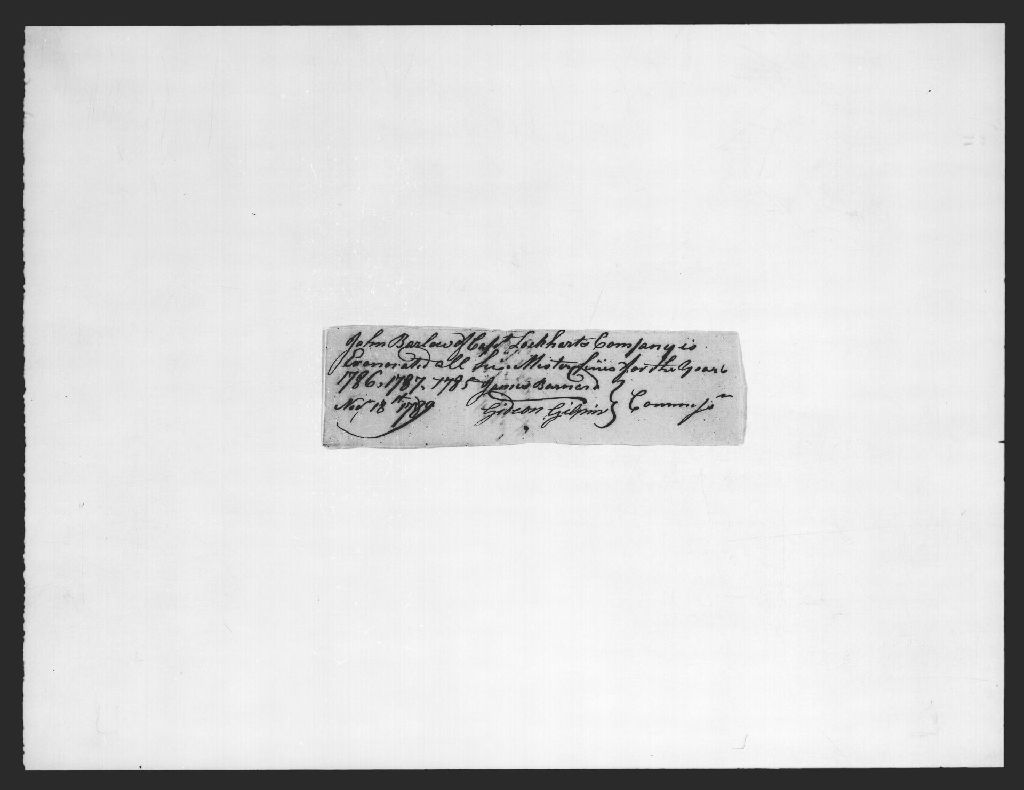 John Barlow of Capt Lockharts Company is
Exonorated all his Muster fines for the Years
1786, 1787, 1785 James Barnard
Novr 18th 1789 Gideon Gilpin } Commiss